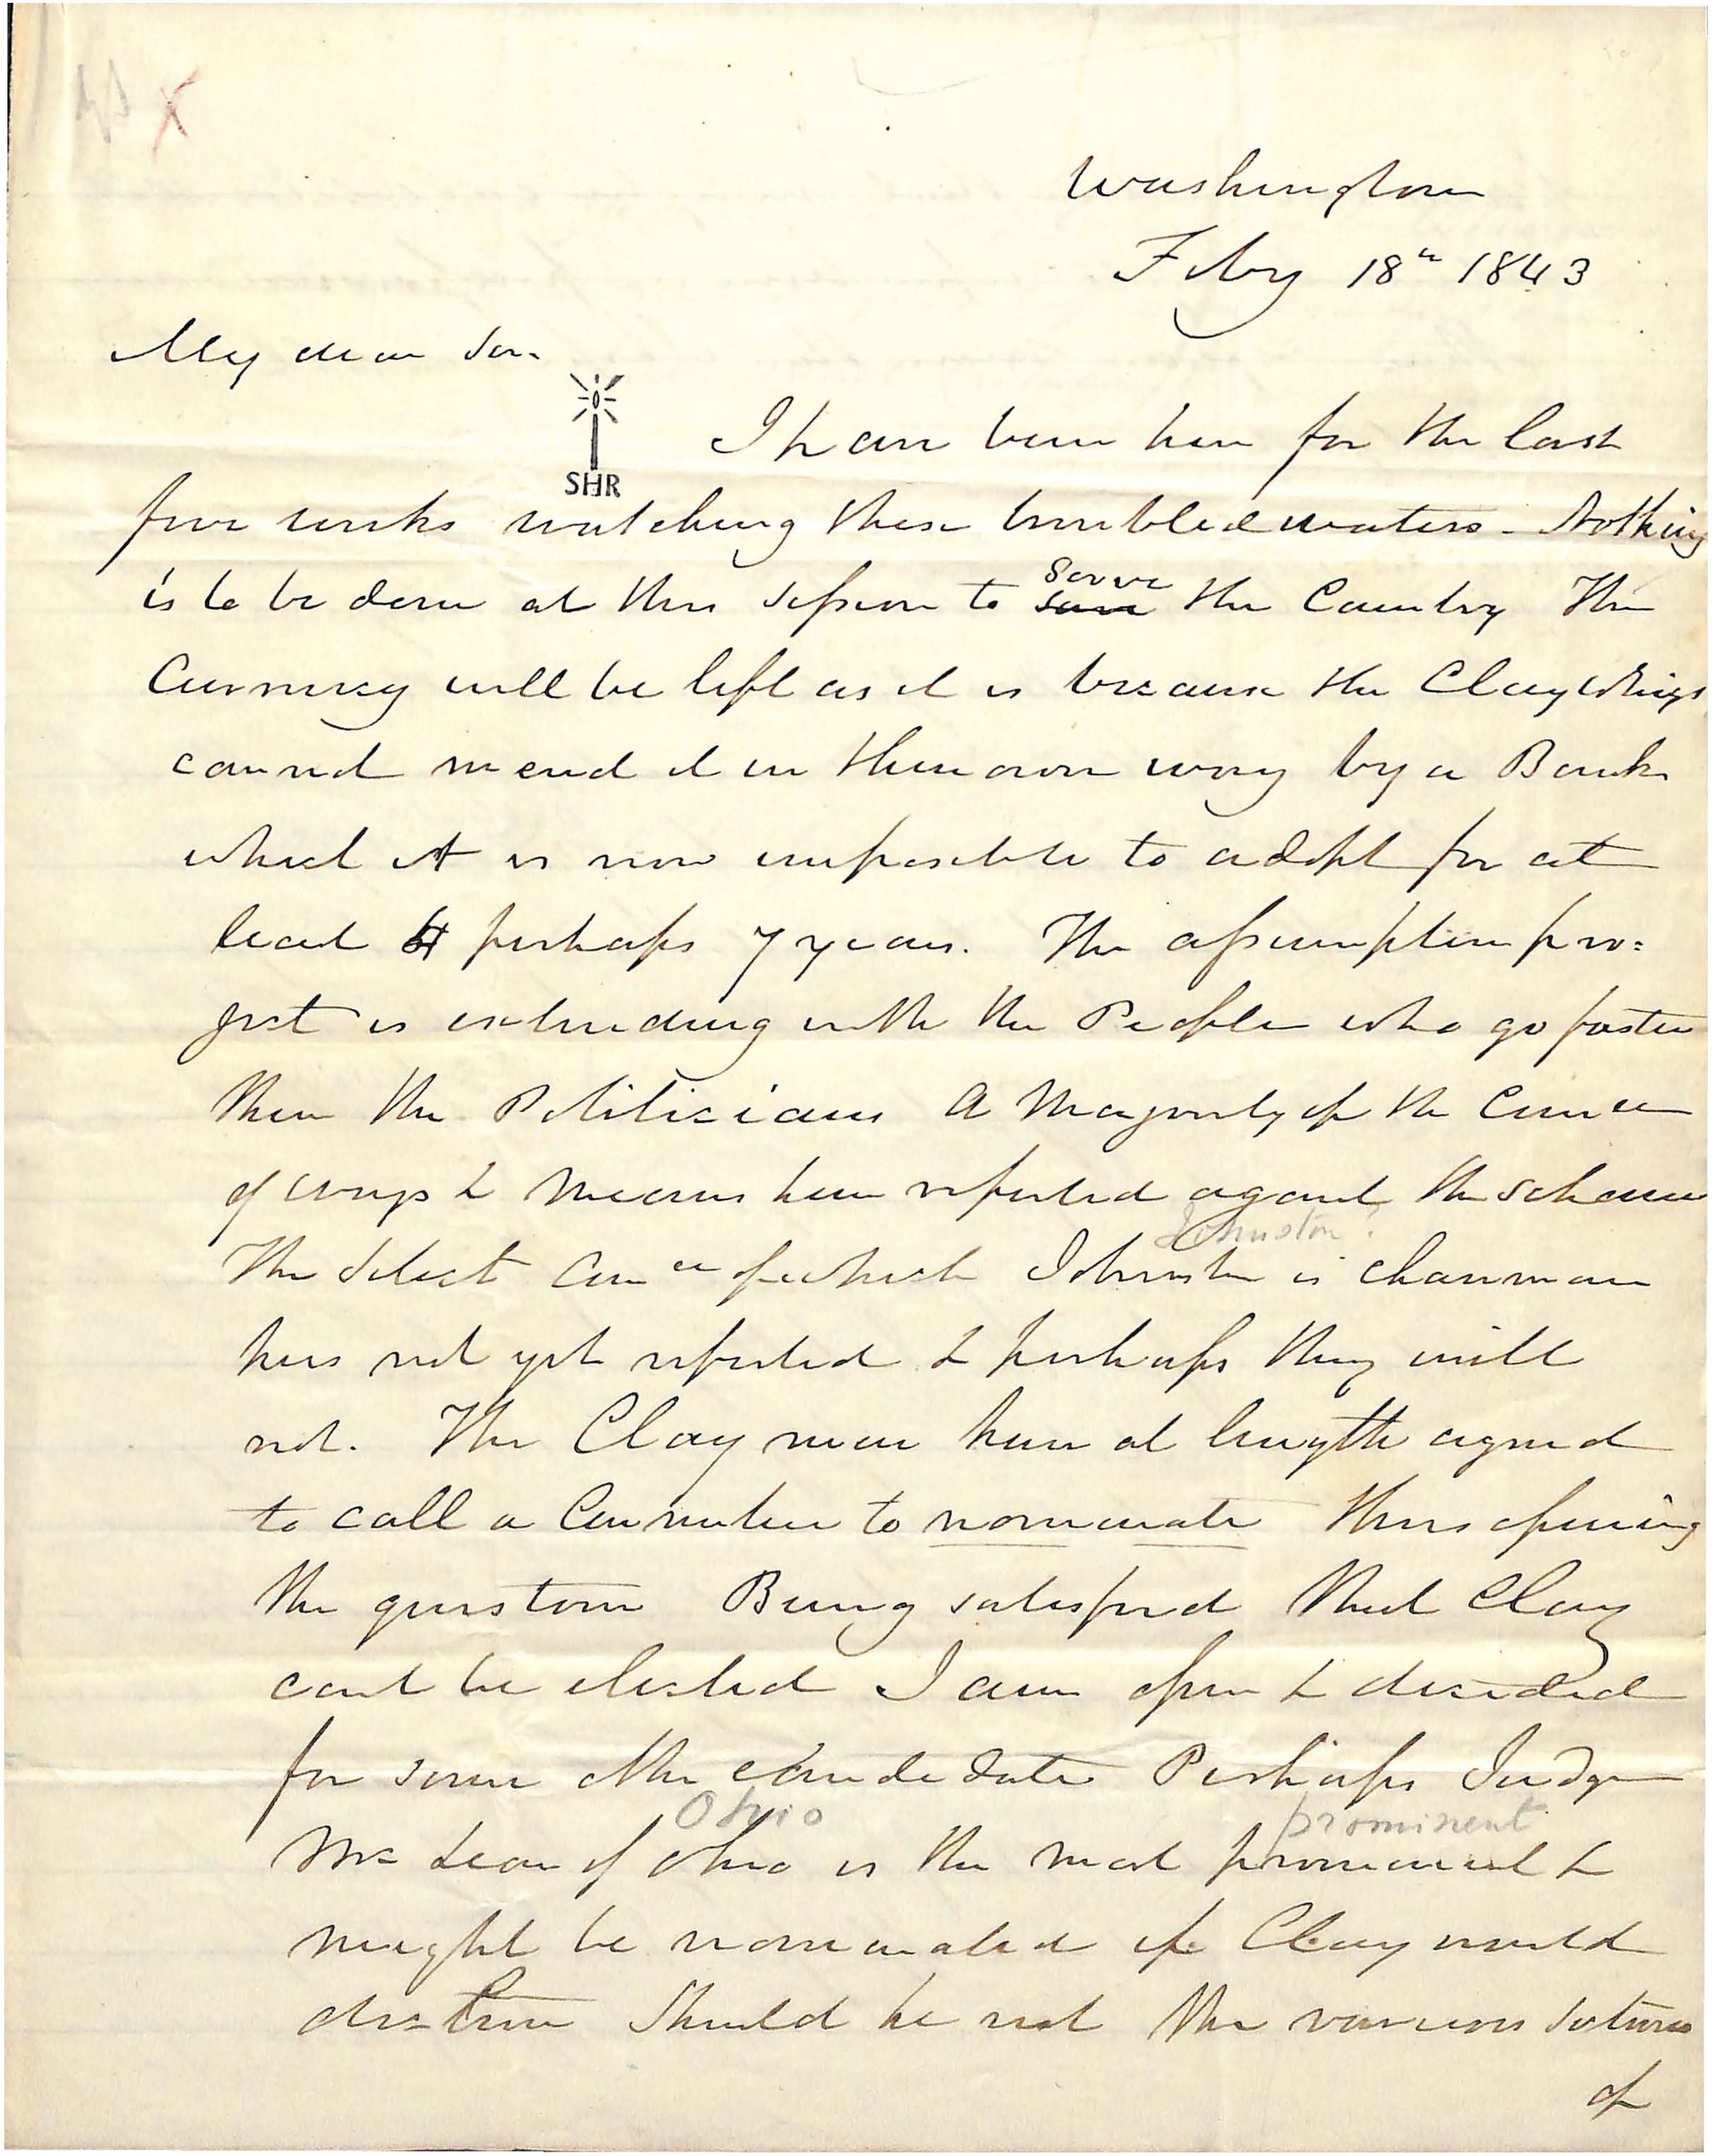 Washington
Feby 18th 1843
My dear Sir.
SHR
I have been here for the last
few weeks watching these troubled waters - Nothing
is to be done at this session to save save the Country The
Currency will be left as it is because the Clay Whigs
cannot mend it in their own way by a Bank
which it is now impossible to adopt for at
least 4 perhaps 7 years. The assumption pro=
ject is extending with the People who go faster
than the Politicians A Majority of the Com ee
of ways & Means have reported against the scheme
Johnston?
The Select Com ee of which Johnston is chairman
has not yet reported & perhaps they will
not. The Clay men have at length agreed
to call a Convention to nominate thus opening
the question Being satisfied that Clay
cant be elected I am open & decided
for some other candidate Perhaps Judge
Ohio prominent
McLean of Ohio is the most prominent &
might be nominated if Clay would
decline Should he not the various
of